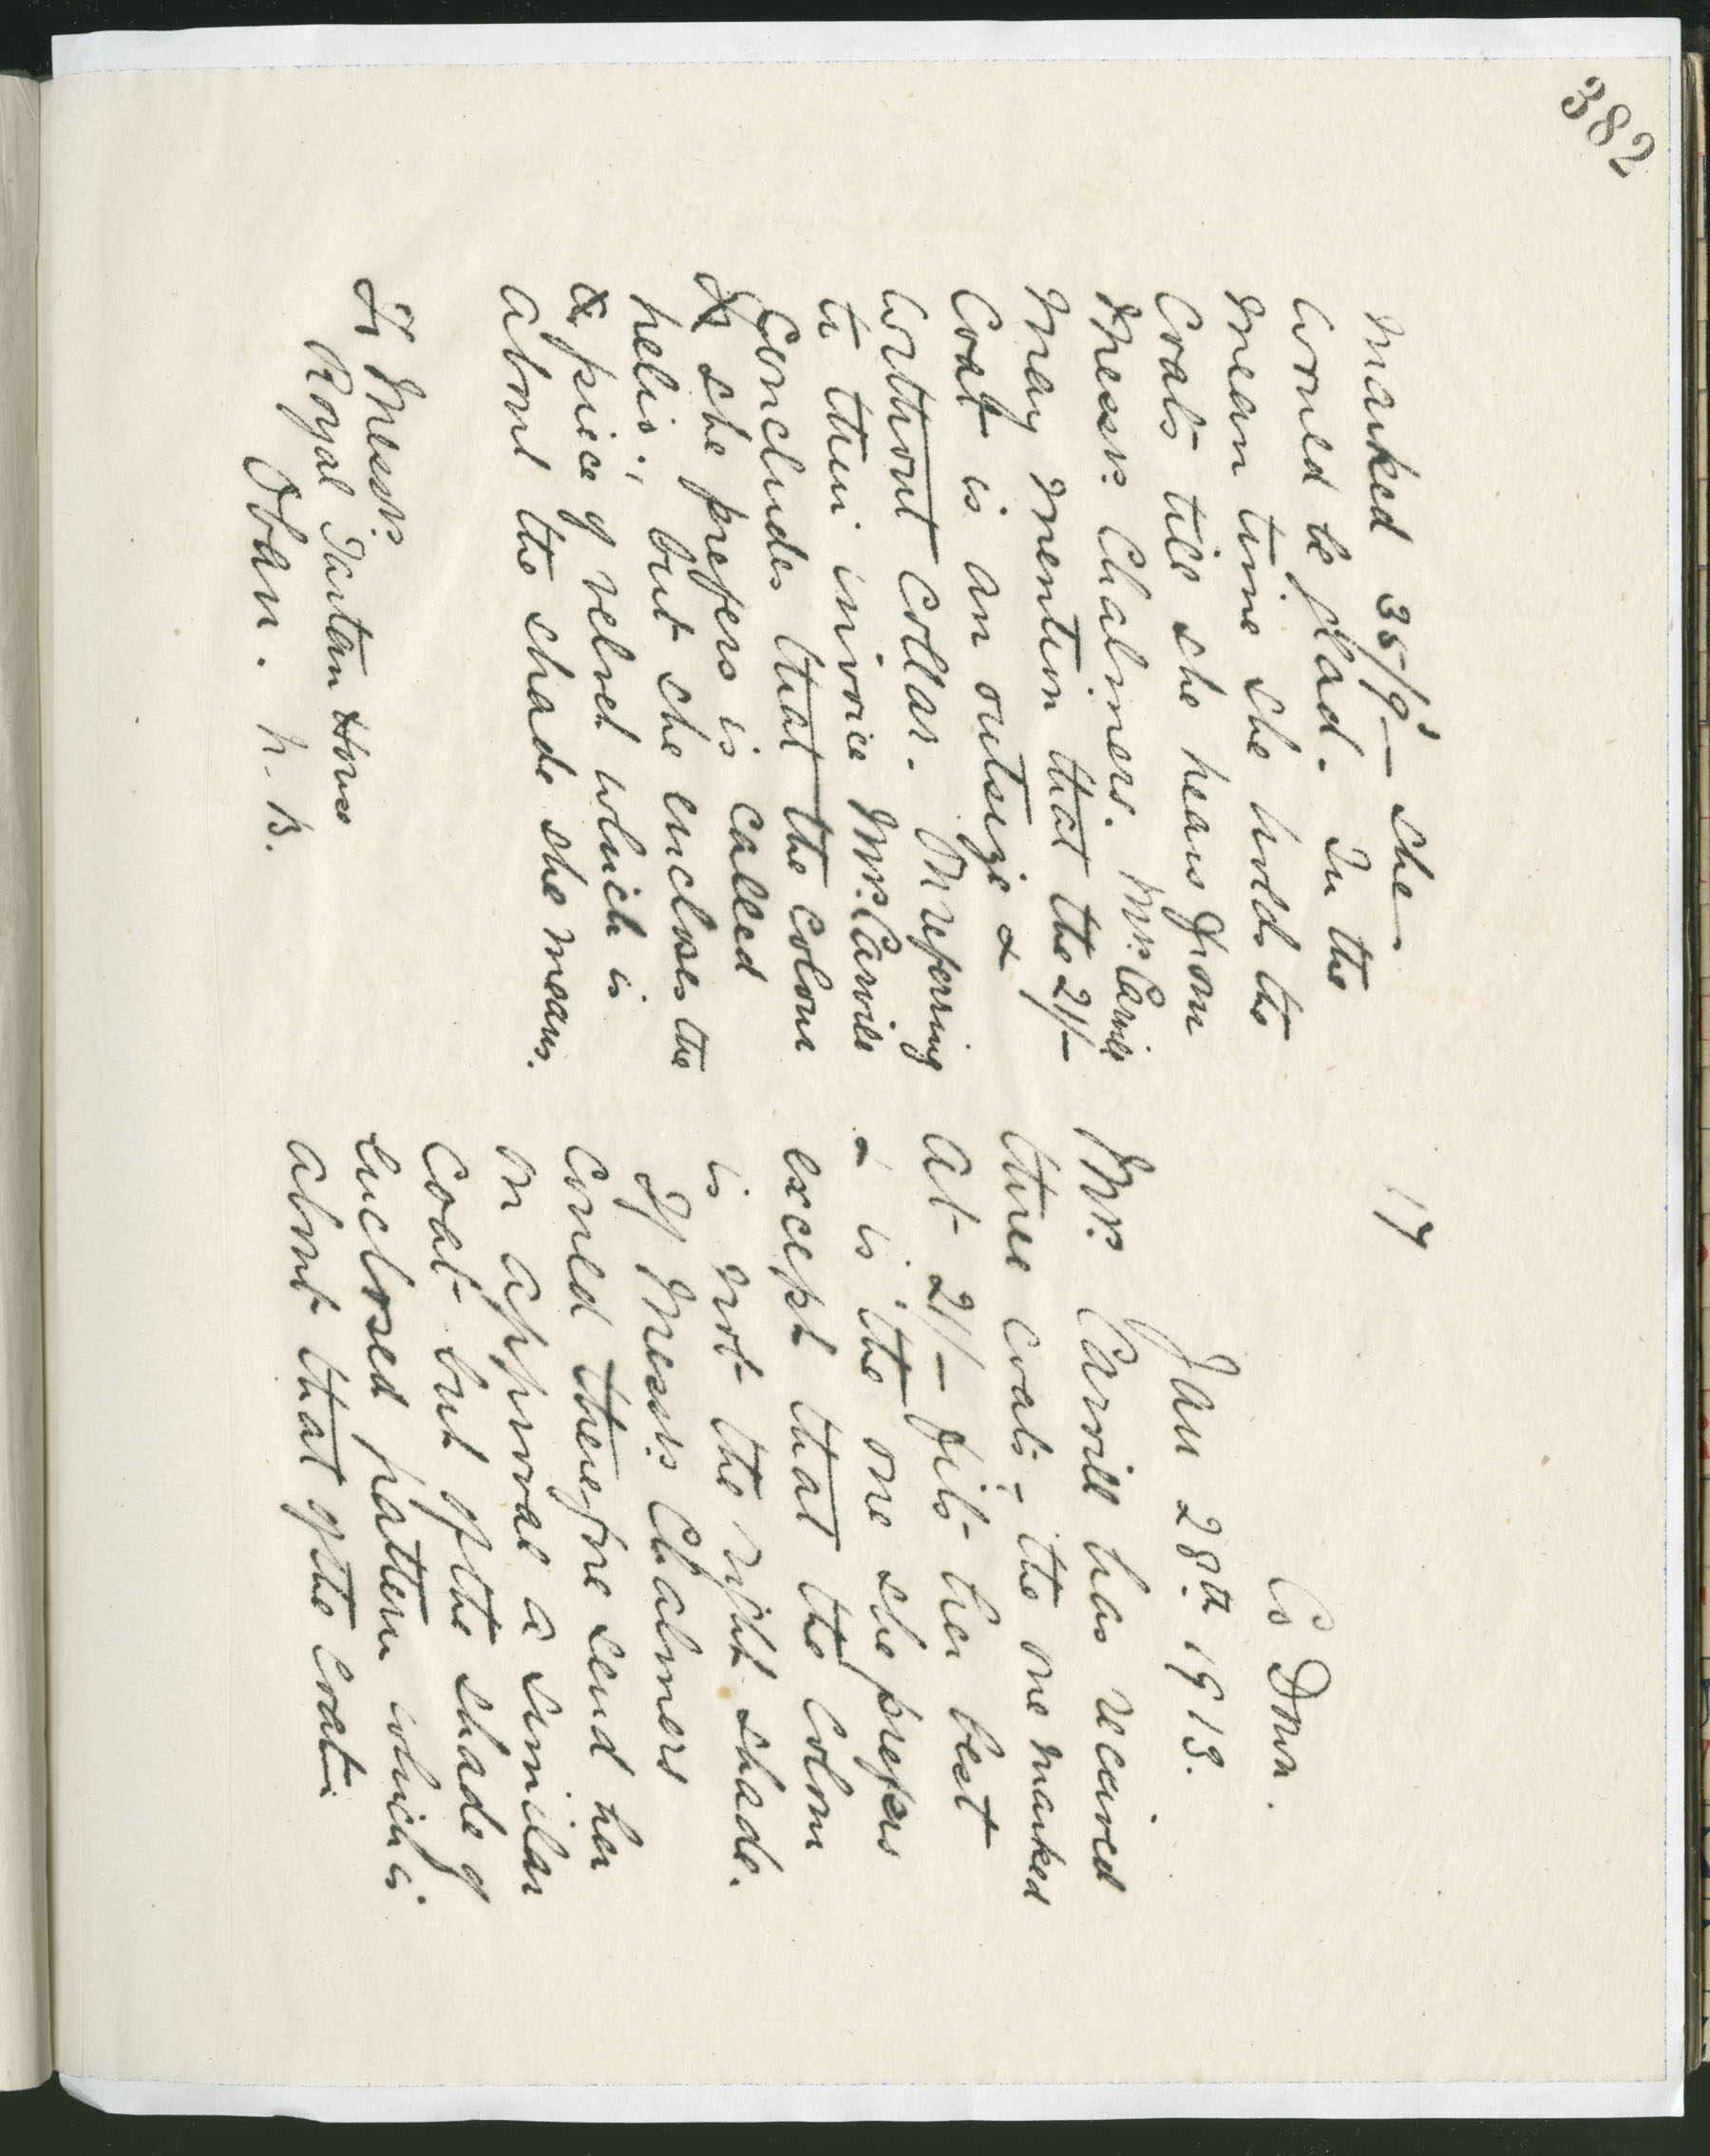 382
17
Co Down.
Jan 28th 1913.
Mrs. Carvill has received
three coats:- the one marked
at 21/- fits her best
& is the one she prefers
except that the colour
is not the right shade.
If Messrs Chalmers
could therefore send her
on approval a similar
coat but of the shade of
enclosed pattern which is
about that of the coat
marked 35/9 - she
would be glad. In the
mean time she holds the
coats till she hears from
Messrs: Chalmers. Mrs. Carvill
may mention that the 21/-
coat is an outsize &
without collar. Referring
to their invoice Mrs: Carvill
concludes that the colour
she prefers is called
helio:, but she encloses the
piece of velvet which is
about the shade she means.
To Messrs:
Royal Tartan House
Oban. N.B.